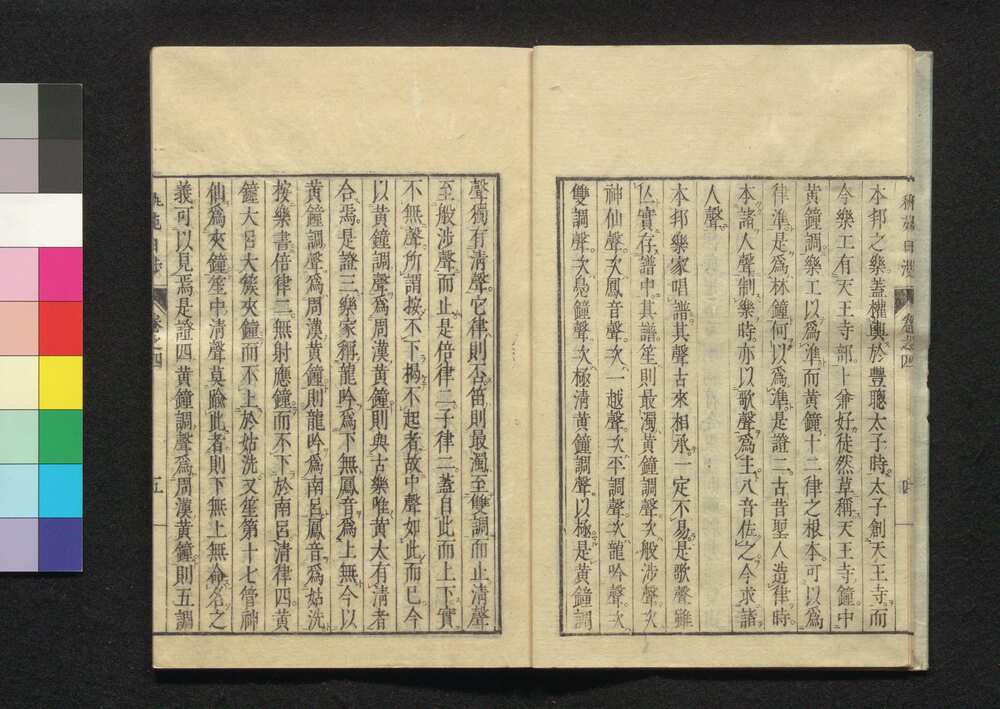 本邦之樂蓋權輿於豐聰太子時太子創天王寺而
今樂工有天王寺部卜兼好徒然草稱天王寺鐘中
黄鐘調樂工以爲準而黄鐘十二律之根本可以爲
律準是爲林鐘何以爲準是證二古昔聖人造律時
本諸人聲制樂時亦以歌聲爲主八音佐之今求諸
人聲
本邦樂家唱譜其聲古來相承一定不易是歌聲雖
亾實存譜中其譜笙則最濁黄鐘調聲次般涉聲次
神仙聲次鳳音聲次一越聲次平調聲次龍吟聲次
雙調聲次鳧鐘聲次極清黄鐘調聲以極是黄鐘調
卷之四
聲獨有清聲它律則否笛則最濁至雙調而止清聲
至般涉聲而止是倍律三子律二蓋自此而上下實
不無聲所謂按不下揭不起者故中聲如此而已今
以黄鐘調聲爲周漢黄鐘則與古樂唯黄大有清者
合焉是證三樂家稱龍吟爲下無鳳音爲上無今以
黄鐘調聲爲周漢黄鐘則龍吟爲南呂鳳音爲姑洗
按樂書倍律二無射應鐘而不下於南呂清律四黄
鐘大呂大簇夾鐘而不上於姑洗又笙第十七管神
仙爲夾鐘笙中清聲莫踰此者則下無上無命名之
義可以見焉是證四黄鐘調聲爲周漢黄鐘則五調
卷之四
五